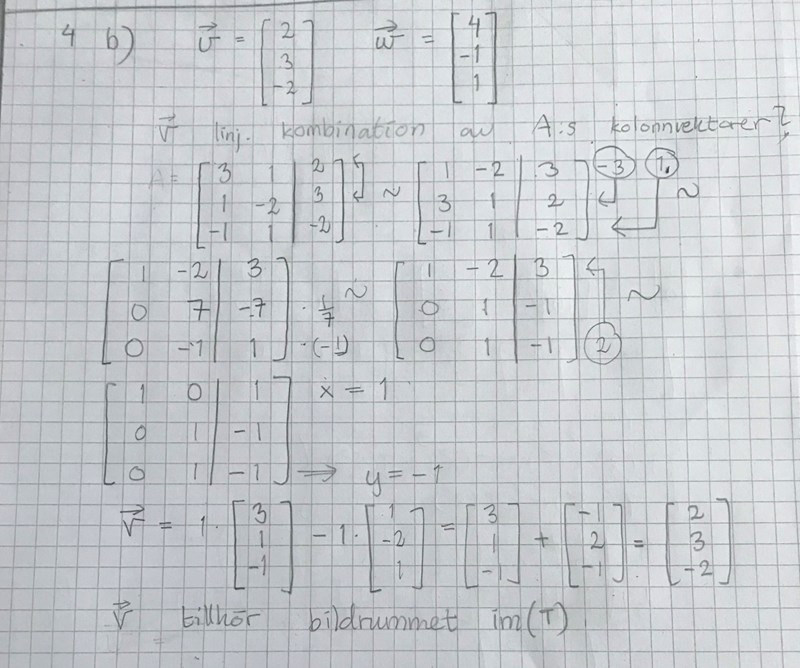 4 b) v⃗ = [2 3 -2] w⃗ = [4 -1 1]
v⃗ linj. kombination av A:s kolonnvektorer?
A = [3 1 | 2; 1 -2 | 3; -1 1 | -2] ~ [1 -2 | 3; 3 1 | 2; -1 1 | -2] (-3) (1.) ~
[1 -2 | 3; 0 7 | -7; 0 -1 | 1] · 1/7 ·(-1) ~ [1 -2 | 3; 0 1 | -1; 0 1 | -1] (2) ~
[1 0 | 1; 0 1 | -1; 0 1 | -1] x = 1 ⟹ y = -1
v⃗ = 1 · [3 1 -1] - 1 · [1 -2 1] = [3 1 -1] + [-1 2 -1] = [2 3 -2]
v⃗ tillhör bildrummet im(T)